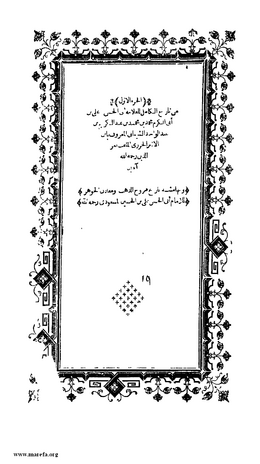 ﴿(الجزء الاول)﴾
من تاريخ الكامل للعلامة أبى الحسن على بن
أبى الكرم محمد بن محمد بن عبد الكريم بن
عبد الواحد الشيبانى المعروف بابن
الاثير الجزرى الملقب بعز
الدين رحمه الله
آمين
﴿وبهامشه تاريخ مروج الذهب ومعادن الجوهر﴾
﴿للامام أبى الحسن على بن الحسين المسعودى رحمه الله﴾
١٩
www.marefa.org